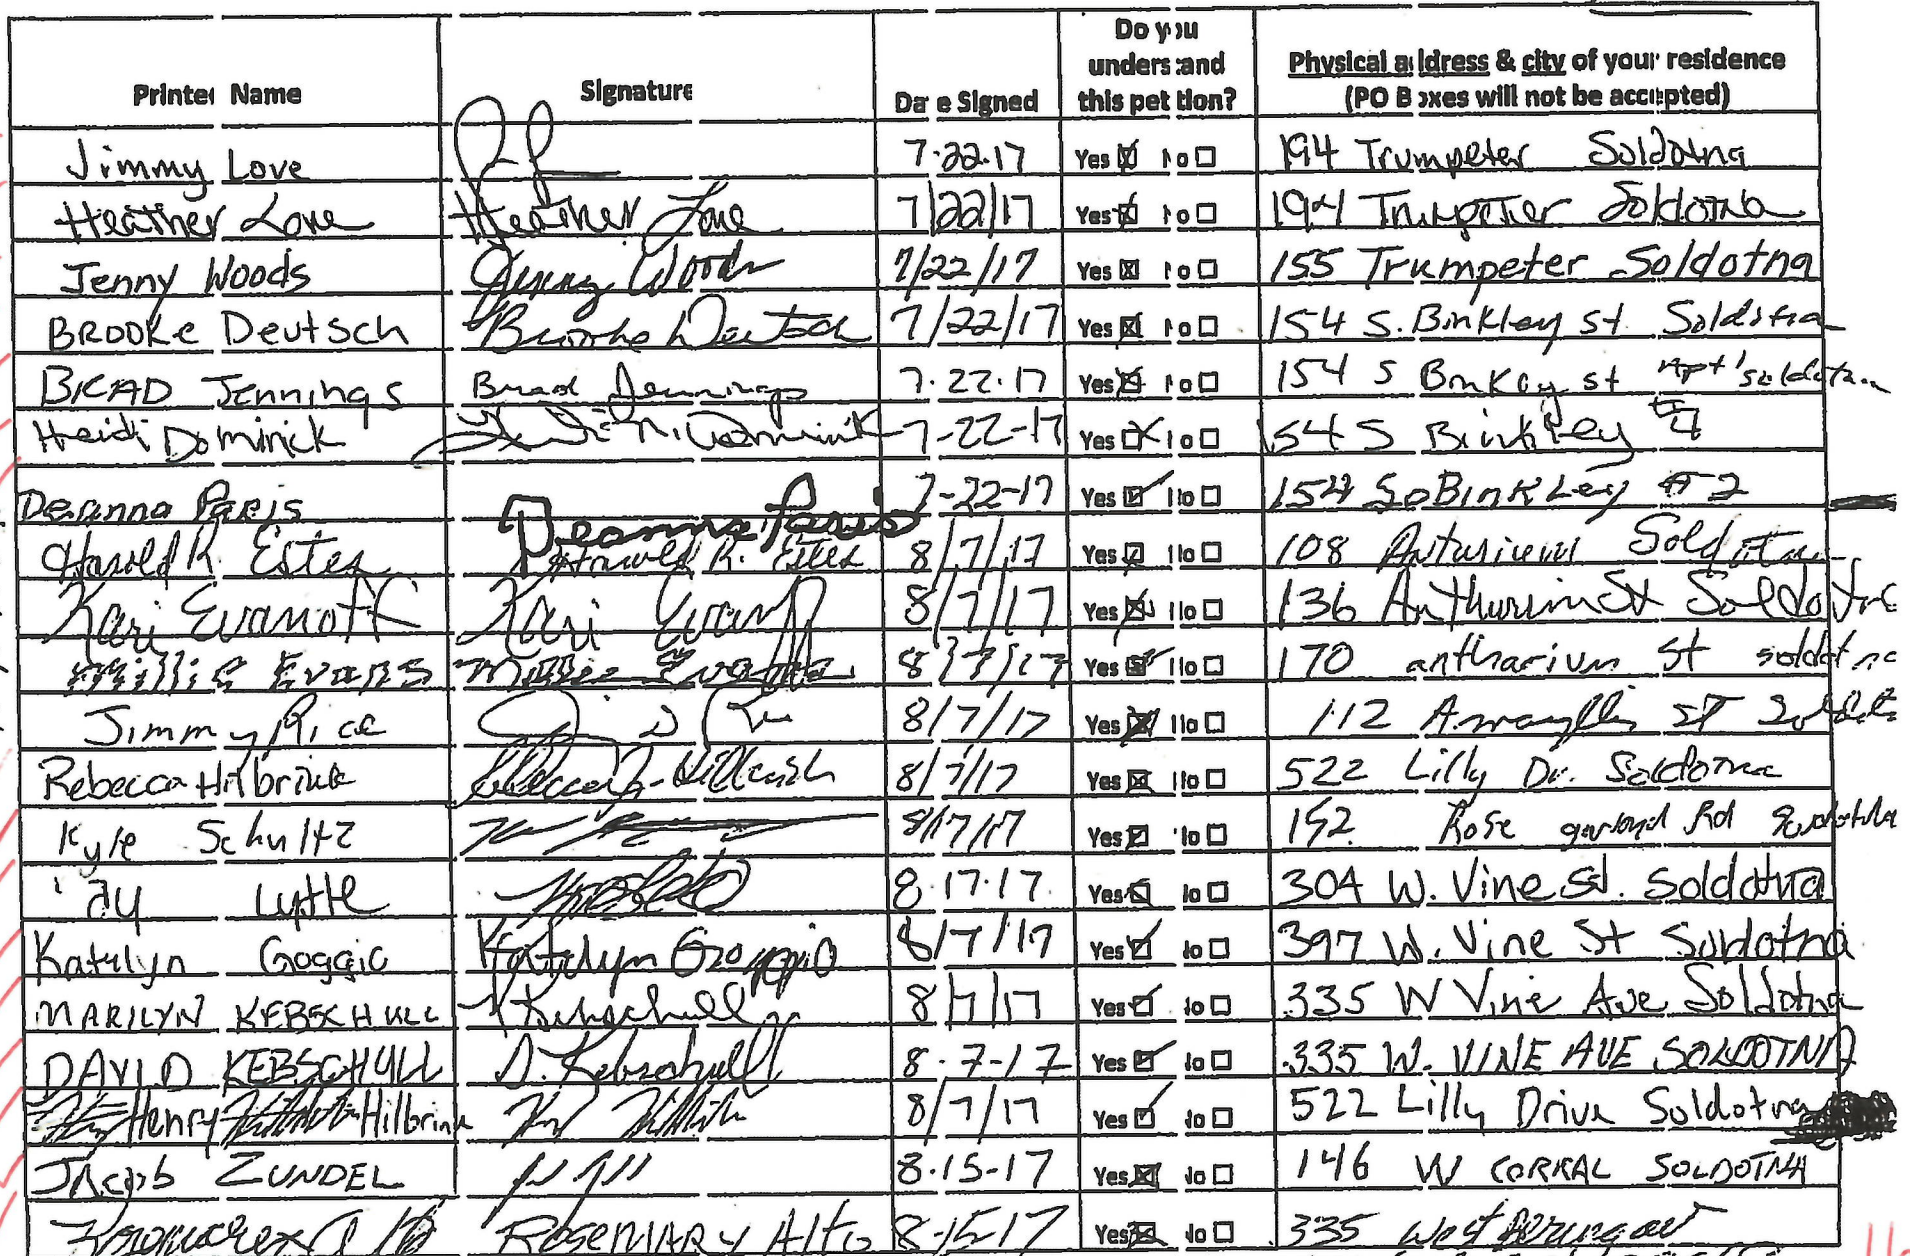 Printed Name Signature Date Signed Do you understand this petition? Physical address & city of your residence (PO Boxes will not be accepted)
Jimmy Love 7.22.17 Yes No 194 Trumpeter Soldotna
Heather Love Heather Love 7/22/17 Yes No 194 Trumpeter Soldotna
Jenny Woods Jenny Woods 7/22/17 Yes No 155 Trumpeter Soldotna
BROOKE Deutsch Brooke Deutsch 7/22/17 Yes No 154 S. Binkley st Soldotna
BRAD Jennings Brad Jennings 7.22.17 Yes No 154 S Binkley st Apt 1 soldotna
Heidi Dominick 7-22-17 Yes No 154 S Binkley #4
Deanna Paris Deanna Paris 7-22-17 Yes No 154 So Binkley #2
Harold R. Estes Harold R. Estes 8/7/17 Yes No 108 Soldotna
Kari Evanoff Kari Evanoff 8/7/17 Yes No 136 Anthurium St Soldotna
Evans 8/7/17 Yes No 170 antharium St soldotna
Jimmy Rice 8/7/17 Yes No 112 Amaryllis ST Soldotna
Rebecca Hilbrink 8/7/17 Yes No 522 Lilly Dr. Soldotna
Kyle Schultz 8/17/17 Yes No 192 Rose Rd Soldotna
Lyttle 8 17.17 Yes No 304 W. Vine St. Soldotna
Katelyn Goggia Katelyn Goggia 8/7/17 Yes No 397 W. Vine St Soldotna
MARILYN KEBSCHULL Kebschull 8/7/17 Yes No 335 W Vine Ave Soldotna
DAVID KEBSCHULL D. Kebschull 8-7-17 Yes No 335 W. VINE AVE SOLDOTNA
Henry Hilbrink 8/7/17 Yes No 522 Lilly Drive Soldotna
Jacob ZUNDEL 8-15-17 Yes No 146 W CORRAL SOLDOTNA
ROSEMARY Alto 8-15-17 Yes No 335 West